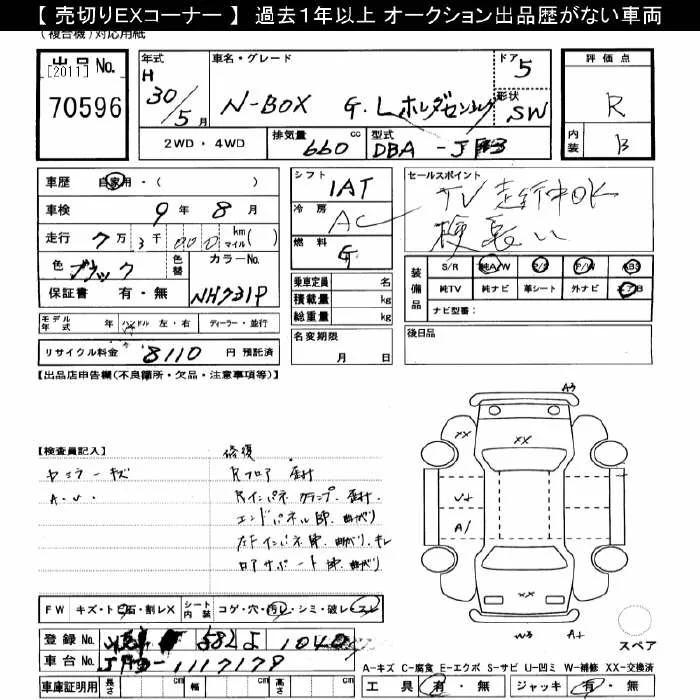 【 売切りEXコーナー 】 過去1年以上 オークション出品歴がない車両
(複合機)対応用紙
出品 No. [2011]
70596
年式 H 30/5月
車名・グレード
N-BOX G.Lホンダセンシング
ドア 5
形状 SW
2WD・4WD
排気量 660 cc
型式 DBA-JF3
評価点 R
内装 B
車歴 自家用・( )
車検 9年 8月
走行 7万 3千 000 km マイル( )
色 ブラック 色替
カラーNo. NH731P
保証書 有・無
シフト IAT
冷房 AC
燃料 G
乗車定員 名
積載量 kg
総重量 kg
名変期限 月 日
セールスポイント
TV走行中OK
装備品
S/R 純A/W P/S P/W ABS
純TV 純ナビ 革シート 外ナビ エアB
ナビ型番:
後日品
モデル年式 年 ハンドル 左・右 ディーラー・並行
リサイクル料金 8110 円 預託済
【出品店申告欄(不良箇所・欠品・注意事項等)】
【検査員記入】
修復
キズ
Rフロア
Rインパネ
エンドパネル
インパネ
ロアサポート
A3
XX
XX
A1
XX
W3 A+
FW キズ・トビ石・割レX
シート内装 コゲ・穴・汚レ・シミ・破レ・スレ
登録 No. 582 よ 1040
車台 No. 1117179
車庫証明用 長さ cm 幅 cm 高さ cm
スペア
A-キズ C-腐食 E-エクボ S-サビ U-凹ミ W-補修 XX-交換済
工具 有・無 ジャッキ 有・無